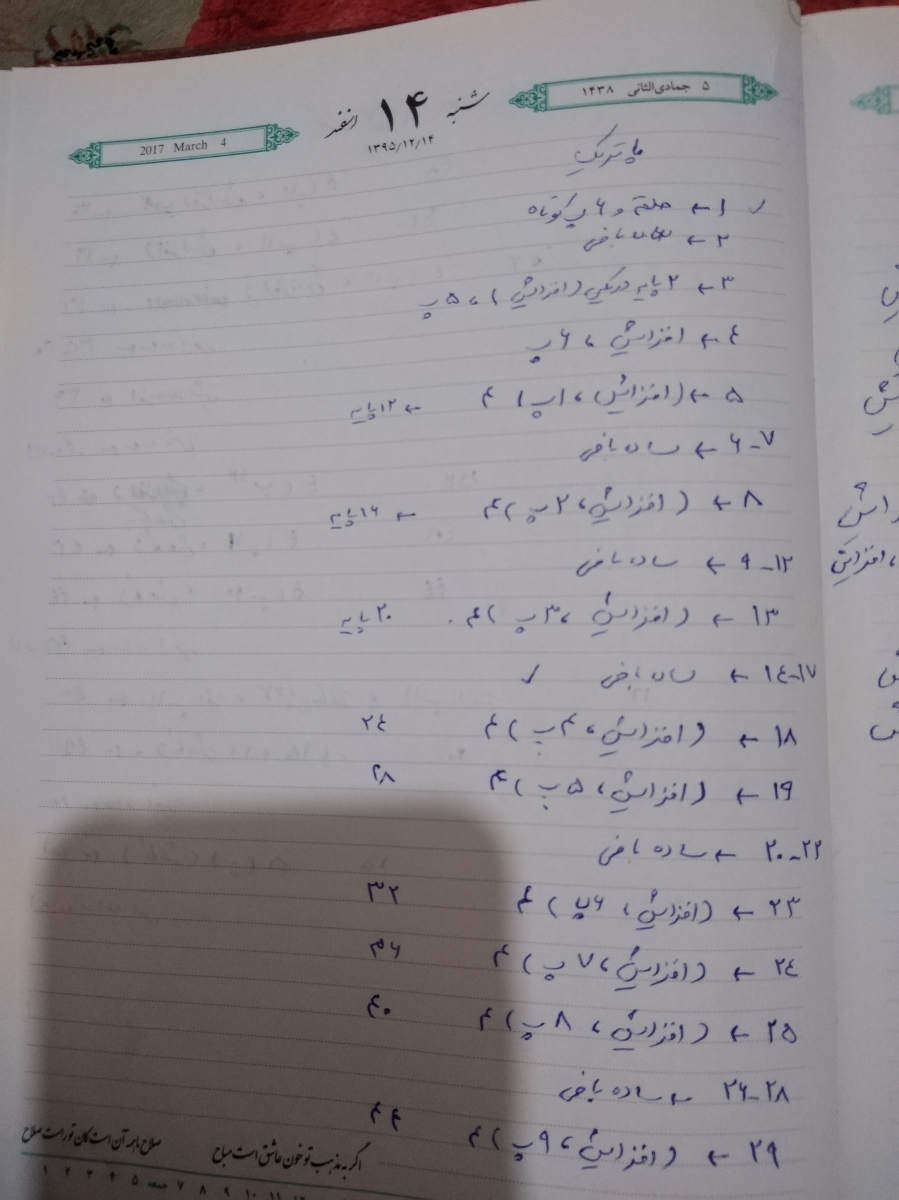 ۵ جمادی‌الثانی ۱۴۳۸
شنبه ۱۴ اسفند
۱۳۹۵/۱۲/۱۴
2017 March 4
ماتریکس
۱ ← حلقه و ۶ پ کوتاه
۲ ← ساده بافی
۳ ← ۲ پایه در یکی (افزایش) ، ۵ پ
۴ ← افزایش ، ۶ پ
۵ ← (افزایش ، ۱ پ) ۴ ← ۱۲ پایه
۶-۷ ← ساده بافی
۸ ← (افزایش ، ۲ پ) ۴ ← ۱۶ پایه
۹-۱۲ ← ساده بافی
۱۳ ← (افزایش ، ۳ پ) ۴ ۲۰ پایه
۱۴-۱۷ ← ساده بافی ✓
۱۸ ← (افزایش ، ۴ پ) ۴ ۲۴
۱۹ ← (افزایش ، ۵ پ) ۴ ۲۸
۲۰-۲۲ ← ساده بافی
۲۳ ← (افزایش ، ۶ پ) ۴ ۳۲
۲۴ ← (افزایش ، ۷ پ) ۴ ۳۶
۲۵ ← (افزایش ، ۸ پ) ۴ ۴۰
۲۶-۲۸ ← ساده بافی
۲۹ ← (افزایش ، ۹ پ) ۴ ۴۴
اگر به مذهب تو خون عاشق است مباح
صلاح ما همه آن است کان تو راست صلاح
۱ ۲ ۳ ۴ ۵ جمعه ۷ ۸ ۹ ۱۰ ۱۱ ۱۲